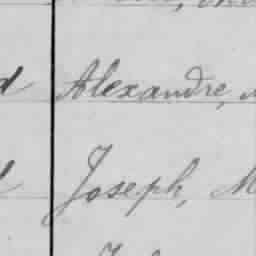 Alexandre,
Joseph, M